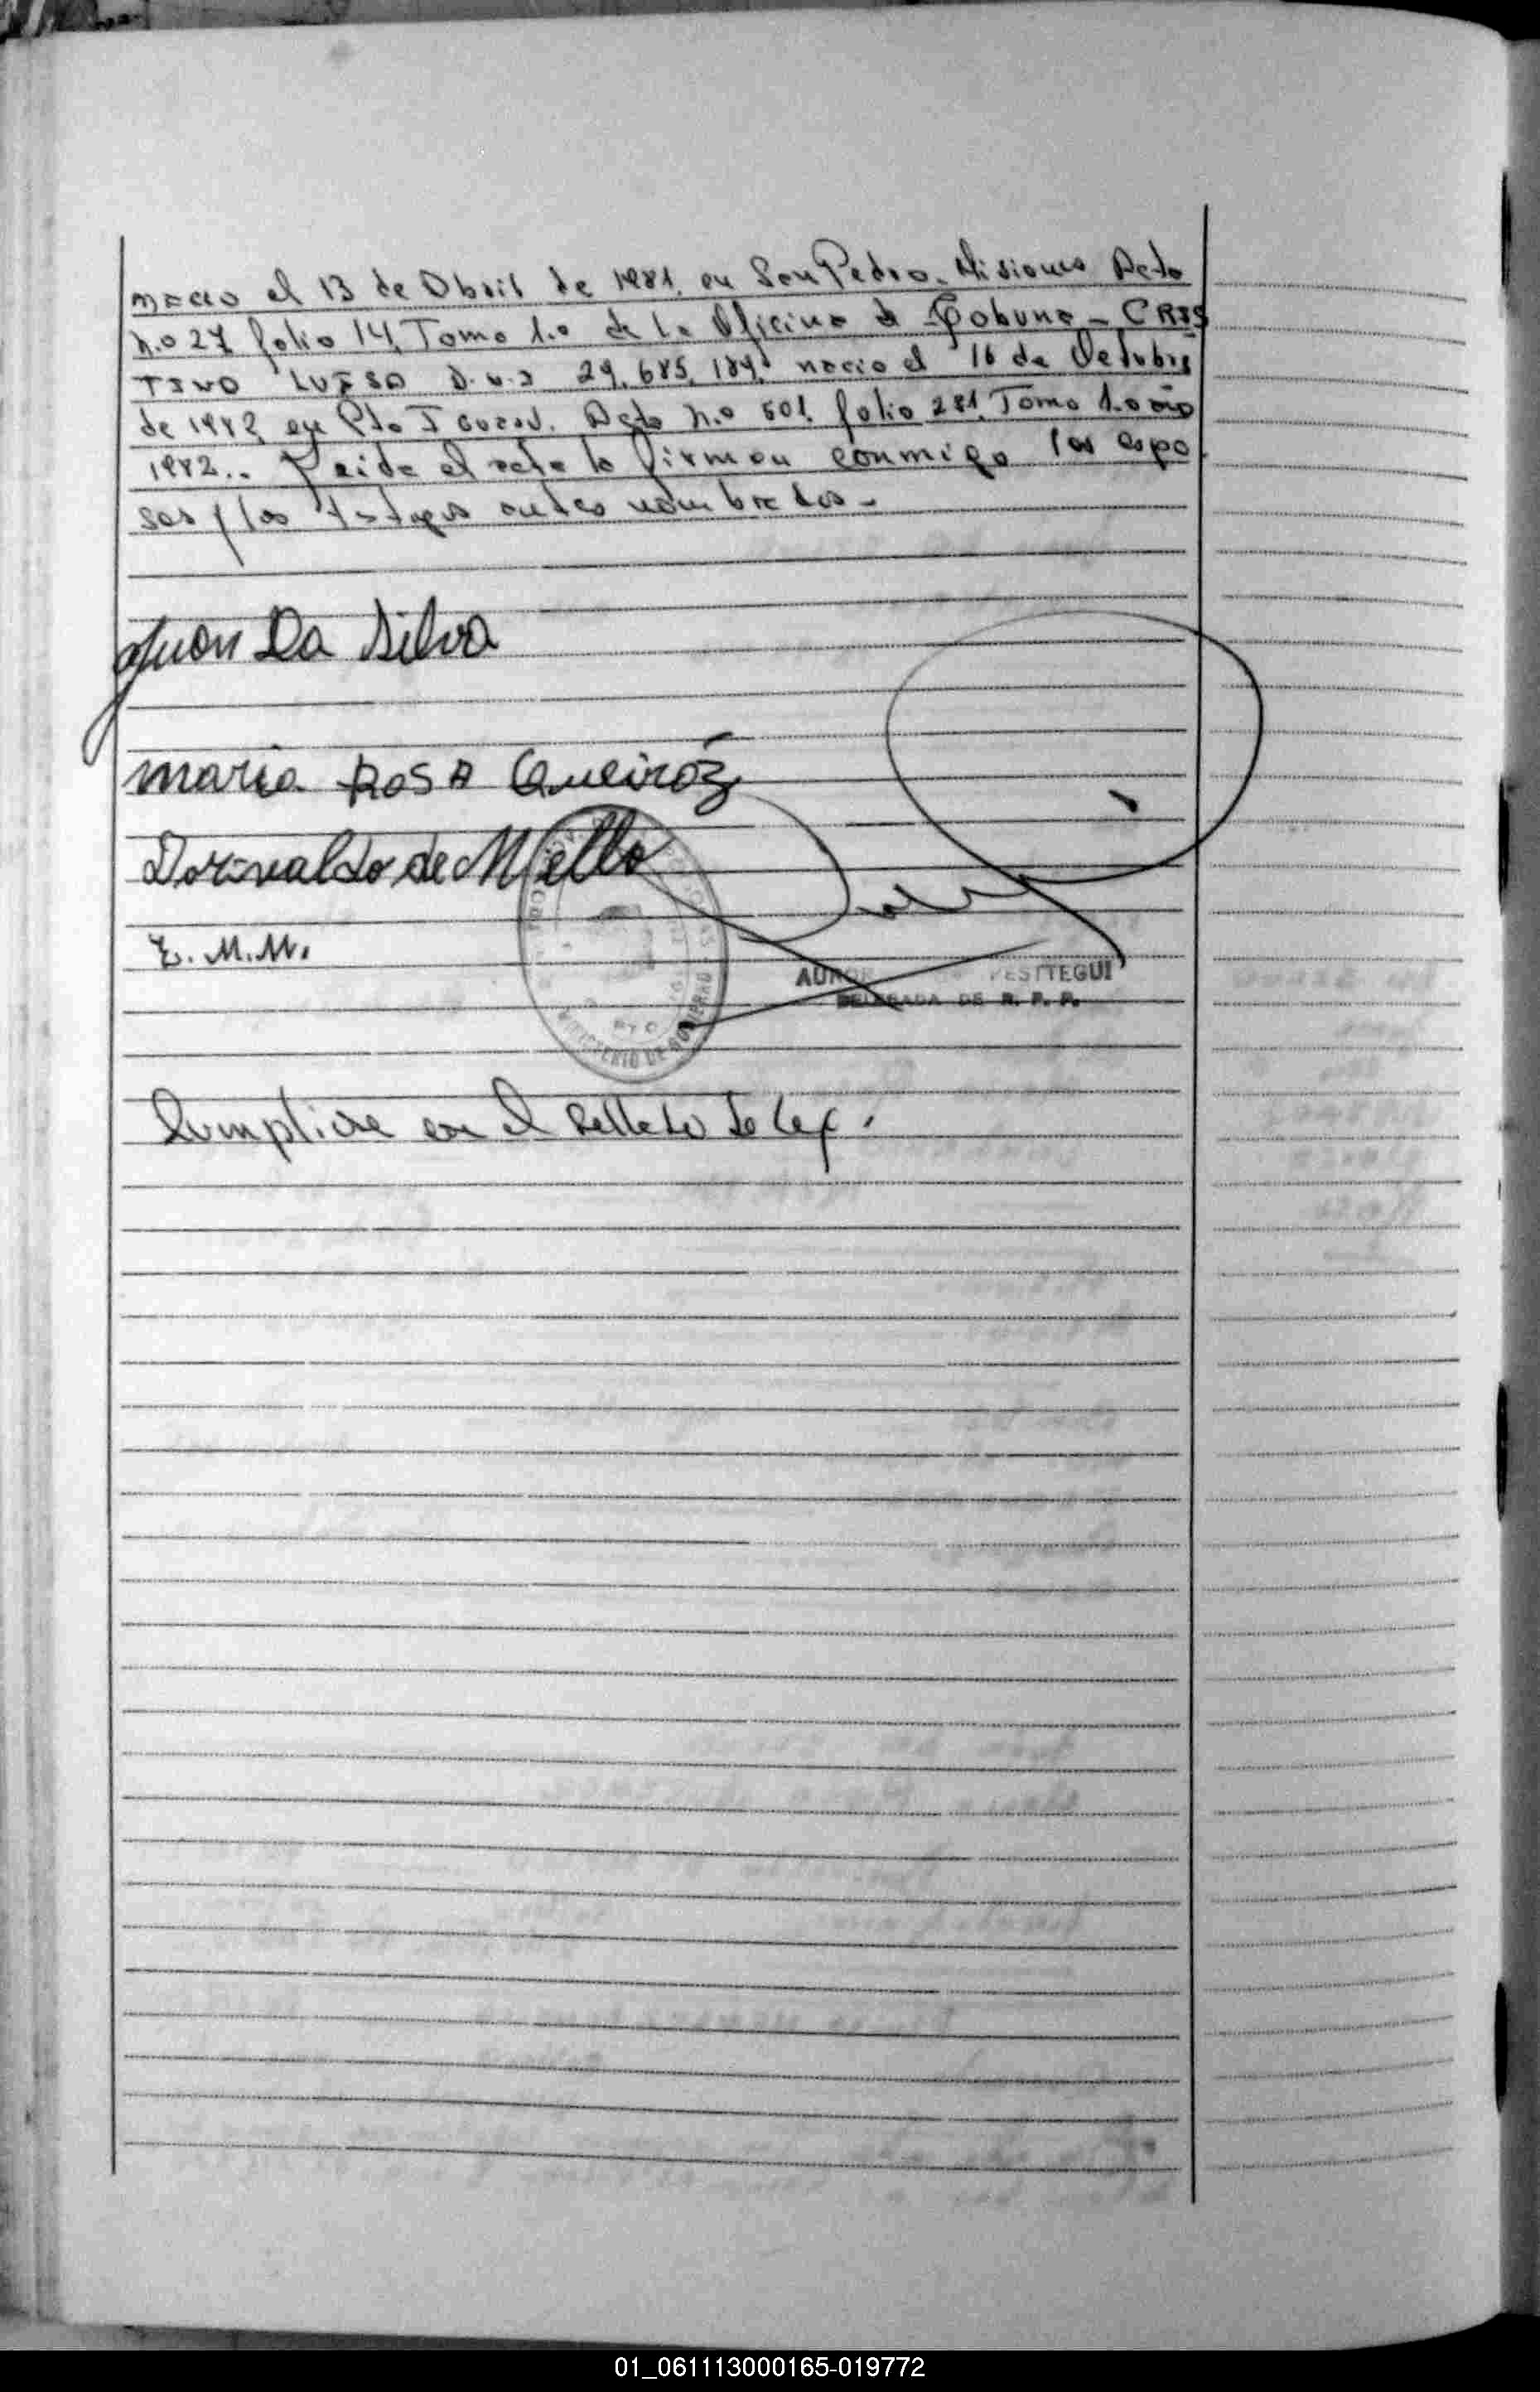 nacio el 13 de Abril de 1981. en San Pedro. Misiones Acta
n.o 27 folio 14, Tomo 1.o de la Oficina de Tobuna - CRIS
TINO LUISA D.N.I 29.685.184. nacio el 16 de Octubre
de 1982 en Pto Iguazú. Acta n.o 501. folio 281. Tomo 1.o año
1982.. Leida el acta la firman conmigo los espo
sos y los testigos antes nombrados -
Juan Da Silva
maria ROSA Queiróz
Dorivaldo de Mello
E. M. M.
MINISTERIO DE GOBIERNO
AUROR ESTTEGUI
DELEGADA DE R. P. P.
Cumplise en el Sellado de Ley.
01_061113000165-019772